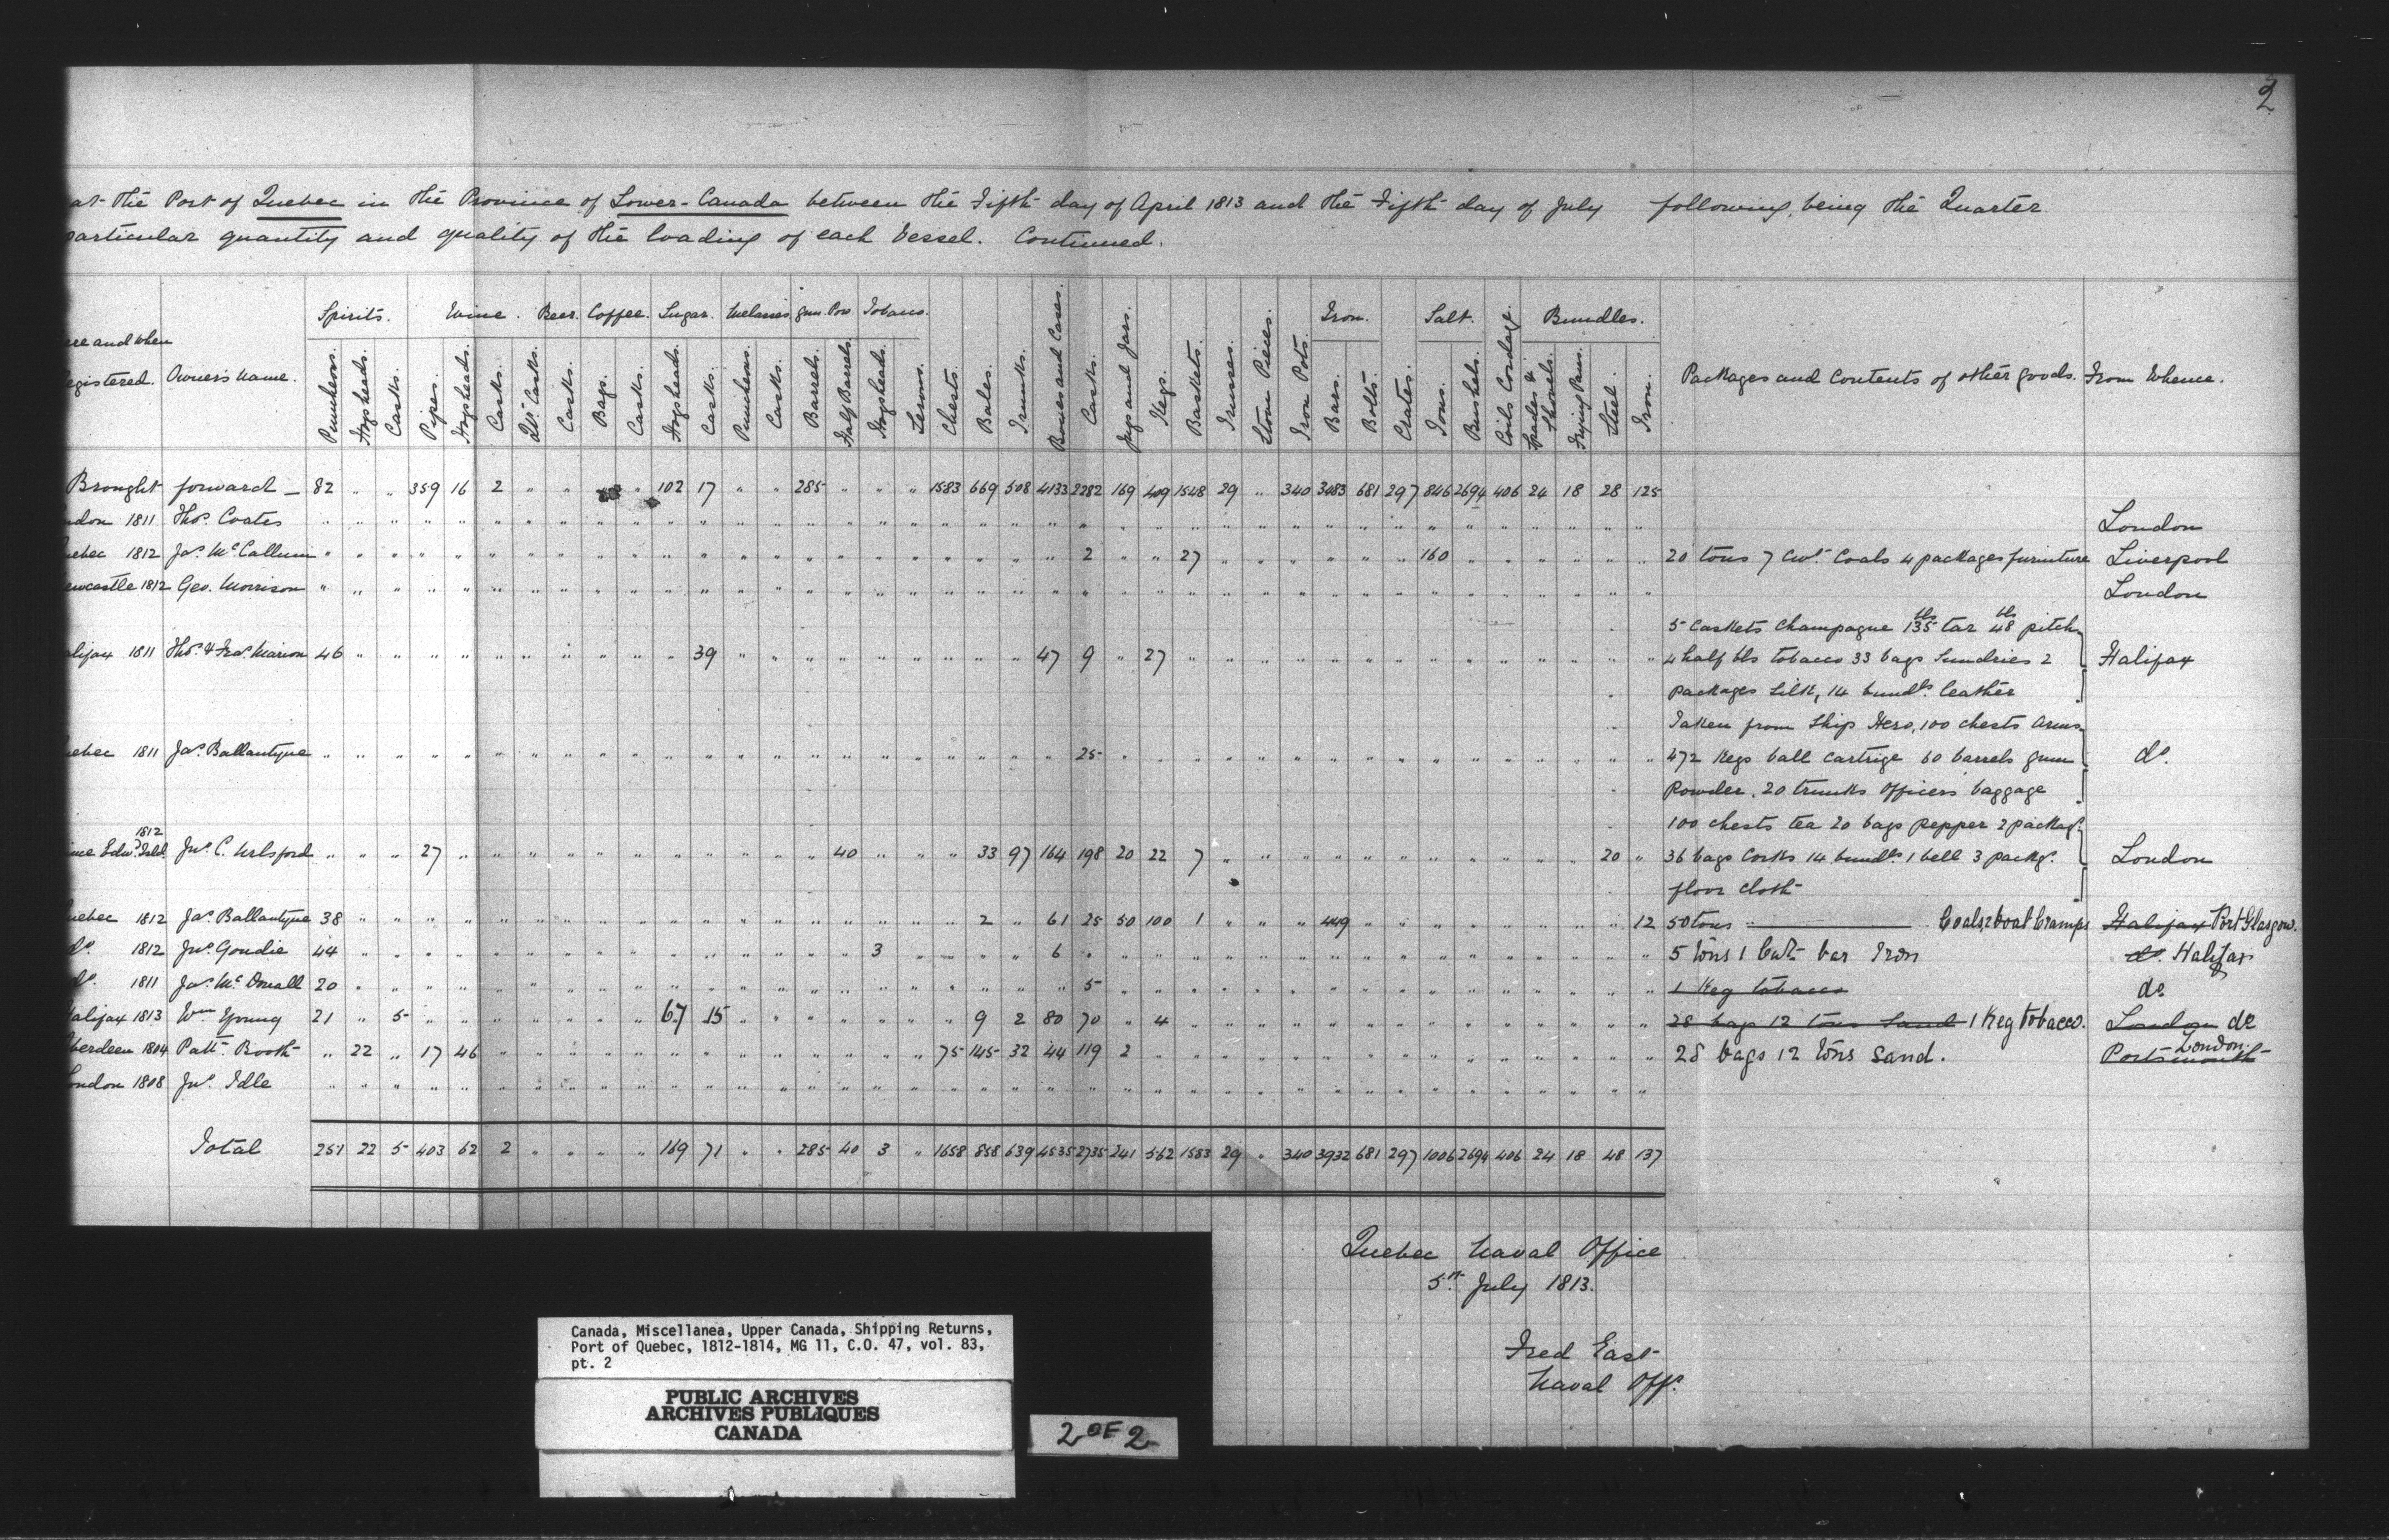 2
at the Port of Quebec in the Province of Lower-Canada between the Fifth day of April 1813 and the Fifth day of July following, being the Quarter
particular quantity and quality of the loading of each Vessel. Continued.
Spirits. Wine. Beer. Coffee. Sugar. Melasses. Gun. Pow. Tobacco. Iron. Salt. Bundles.
ere and when
egistered. Owner's Name. Puncheons. Hogsheads. Casks. Pipes. Hogsheads. Casks. Qr. Casks. Casks. Bags. Casks. Hogsheads. Casks. Puncheons. Casks. Barrels. Half Barrels. Hogsheads. Serons. Chests. Bales. Trunks. Boxes and Cases. Casks. Jugs and Jars. Kegs. Baskets. Trusses. Stone Pieces. Iron Pots. Bars. Bolts. Crates. Tons. Bushels. Coils Cordage. Spades & Shovels. Frying Pans. Steel. Iron. Packages and Contents of other goods. From Whence.
Brought forward 82 " " 359 16 2 " " " 102 17 " " 285 " " " 1583 669 508 4133 2282 169 409 1548 29 " 340 3483 681 297 846 2694 406 24 18 28 125
ndon 1811 Thos. Coates London
uebec 1812 Jas. McCallum 2 27 160 20 tons 7 Cwt. Coals 4 packages furniture Liverpool
ewcastle 1812 Geo. Morrison London
5 Caskets Champagne 135 bls tar 48 bls pitch
alifax 1811 Thos. & Fras. Marion 46 39 47 9 27 4 half bls tobacco 33 bags Sundries 2 Halifax
packages Silk, 14 bundls. leather
Taken from Ship Hero, 100 chests Arms
uebec 1811 Jas. Ballantyne 25 472 Kegs ball Cartrige 60 barrels gun do.
Powder. 20 trunks Officers baggage
100 chests tea 20 bags pepper 2 packags.
1812
ince Edwd. Isld. Jno. C. 27 40 33 97 164 198 20 22 7 20 36 bags Corks 14 bundls. 1 bell 3 packgs. London
floor cloth
uebec 1812 Jas. Ballantyne 38 2 61 25 50 100 1 449 12 50 tons Coals, 2 boat Cramps Halifax Port Glasgow.
do. 1812 Jno. Goudie 44 3 6 5 tons 1 Cwt bar Iron do. Halifax
do. 1811 Jas. McDouall 20 5 1 Keg tobacco do.
alifax 1813 Wm. Young 21 " 5 67 15 9 2 80 70 " 4 28 bags 12 tons Sand 1 Keg tobacco. London do
berdeen 1804 Patt. Booth " 22 " 17 46 75 145 32 44 119 2 28 bags 12 tons Sand. Portsmouth London.
ondon 1808 Jno. Idle
Total 251 22 5 403 62 2 " " " " 169 71 " " 285 40 3 " 1658 858 639 4535 2735 241 562 1583 29 " 340 3932 681 297 1006 2694 406 24 18 48 137
Quebec Naval Office
5th. July 1813.
Fred East
Naval Offr.
Canada, Miscellanea, Upper Canada, Shipping Returns,
Port of Quebec, 1812-1814, MG 11, C.O. 47, vol. 83,
pt. 2
PUBLIC ARCHIVES
ARCHIVES PUBLIQUES
CANADA
2 OF 2